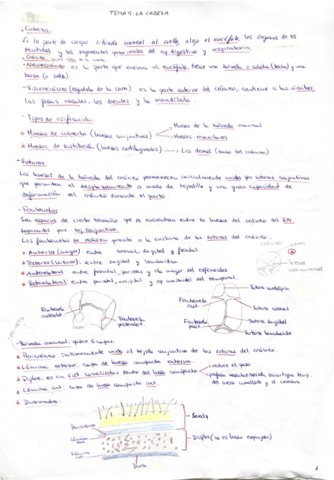 TEMA 9: LA CABEZA
- Cabeza
Es la parte de cuerpo situada craneal al cuello, aloja el encéfalo, los órganos de los
sentidos y los segmentos proximales del ap. digestivo y respiratorio.
- Neurocráneo: es la parte que encierra al encéfalo, tiene una bóveda o calota (techo) y una
base (o suelo)
- Viscerocráneo (esqueleto de la cara) es la parte anterior del cráneo, contiene a las órbitas,
las fosas nasales, los dientes y la mandíbula.
- Tipos de osificación.
* Huesos de cubierta (huesos conjuntivos) Huesos de la bóveda craneal
Huesos
* Huesos de sustitución (huesos cartilaginosos) → Los demás (base del cráneo)
- Suturas.
Los huesos de la bóveda del cráneo permanecen inicialmente unidos por suturas conjuntivas
que permiten el desplazamiento a modo de tejadillo y una gran capacidad de
deformación del cráneo durante el parto.
- Fontanelas
Son espacios de cierto tamaño que se encuentran entre los huesos del cráneo del RN
separados por tej. conjuntivo.
Las fontanelas se reducen gracias a la anchura de las suturas del cráneo.
* Anterior (mayor) entre coronal, sagital y frontal
* Posterior (menor), entre sagital y lambdoidea
* Anterolateral entre frontal, parietal y ala mayor del esfenoides
* Posterolateral entre parietal, occipital y ap. mastoides del temporal.
Sutura metópica
Fontanela
anterolat.
Fontanela
posterolat.
Fontanela
ant.
Fontanela
post.
Sutura coronal
Sutura sagital
Sutura lambdoidea
- Bóveda craneal, partes 5 capas:
* Pericráneo: íntimamente unido al tejido conjuntivo de las suturas del cráneo.
* Lámina externa: capa de hueso compacto externa
* Diploe: es un tej. entre del hueso compacto → reduce el peso
* Lámina int.: capa de hueso compacto int.
* Duramadre:
Pericráneo
Lámina
ext.
Lámina int.
Scalp
Diploe (es el hueso esponjoso)
Dura